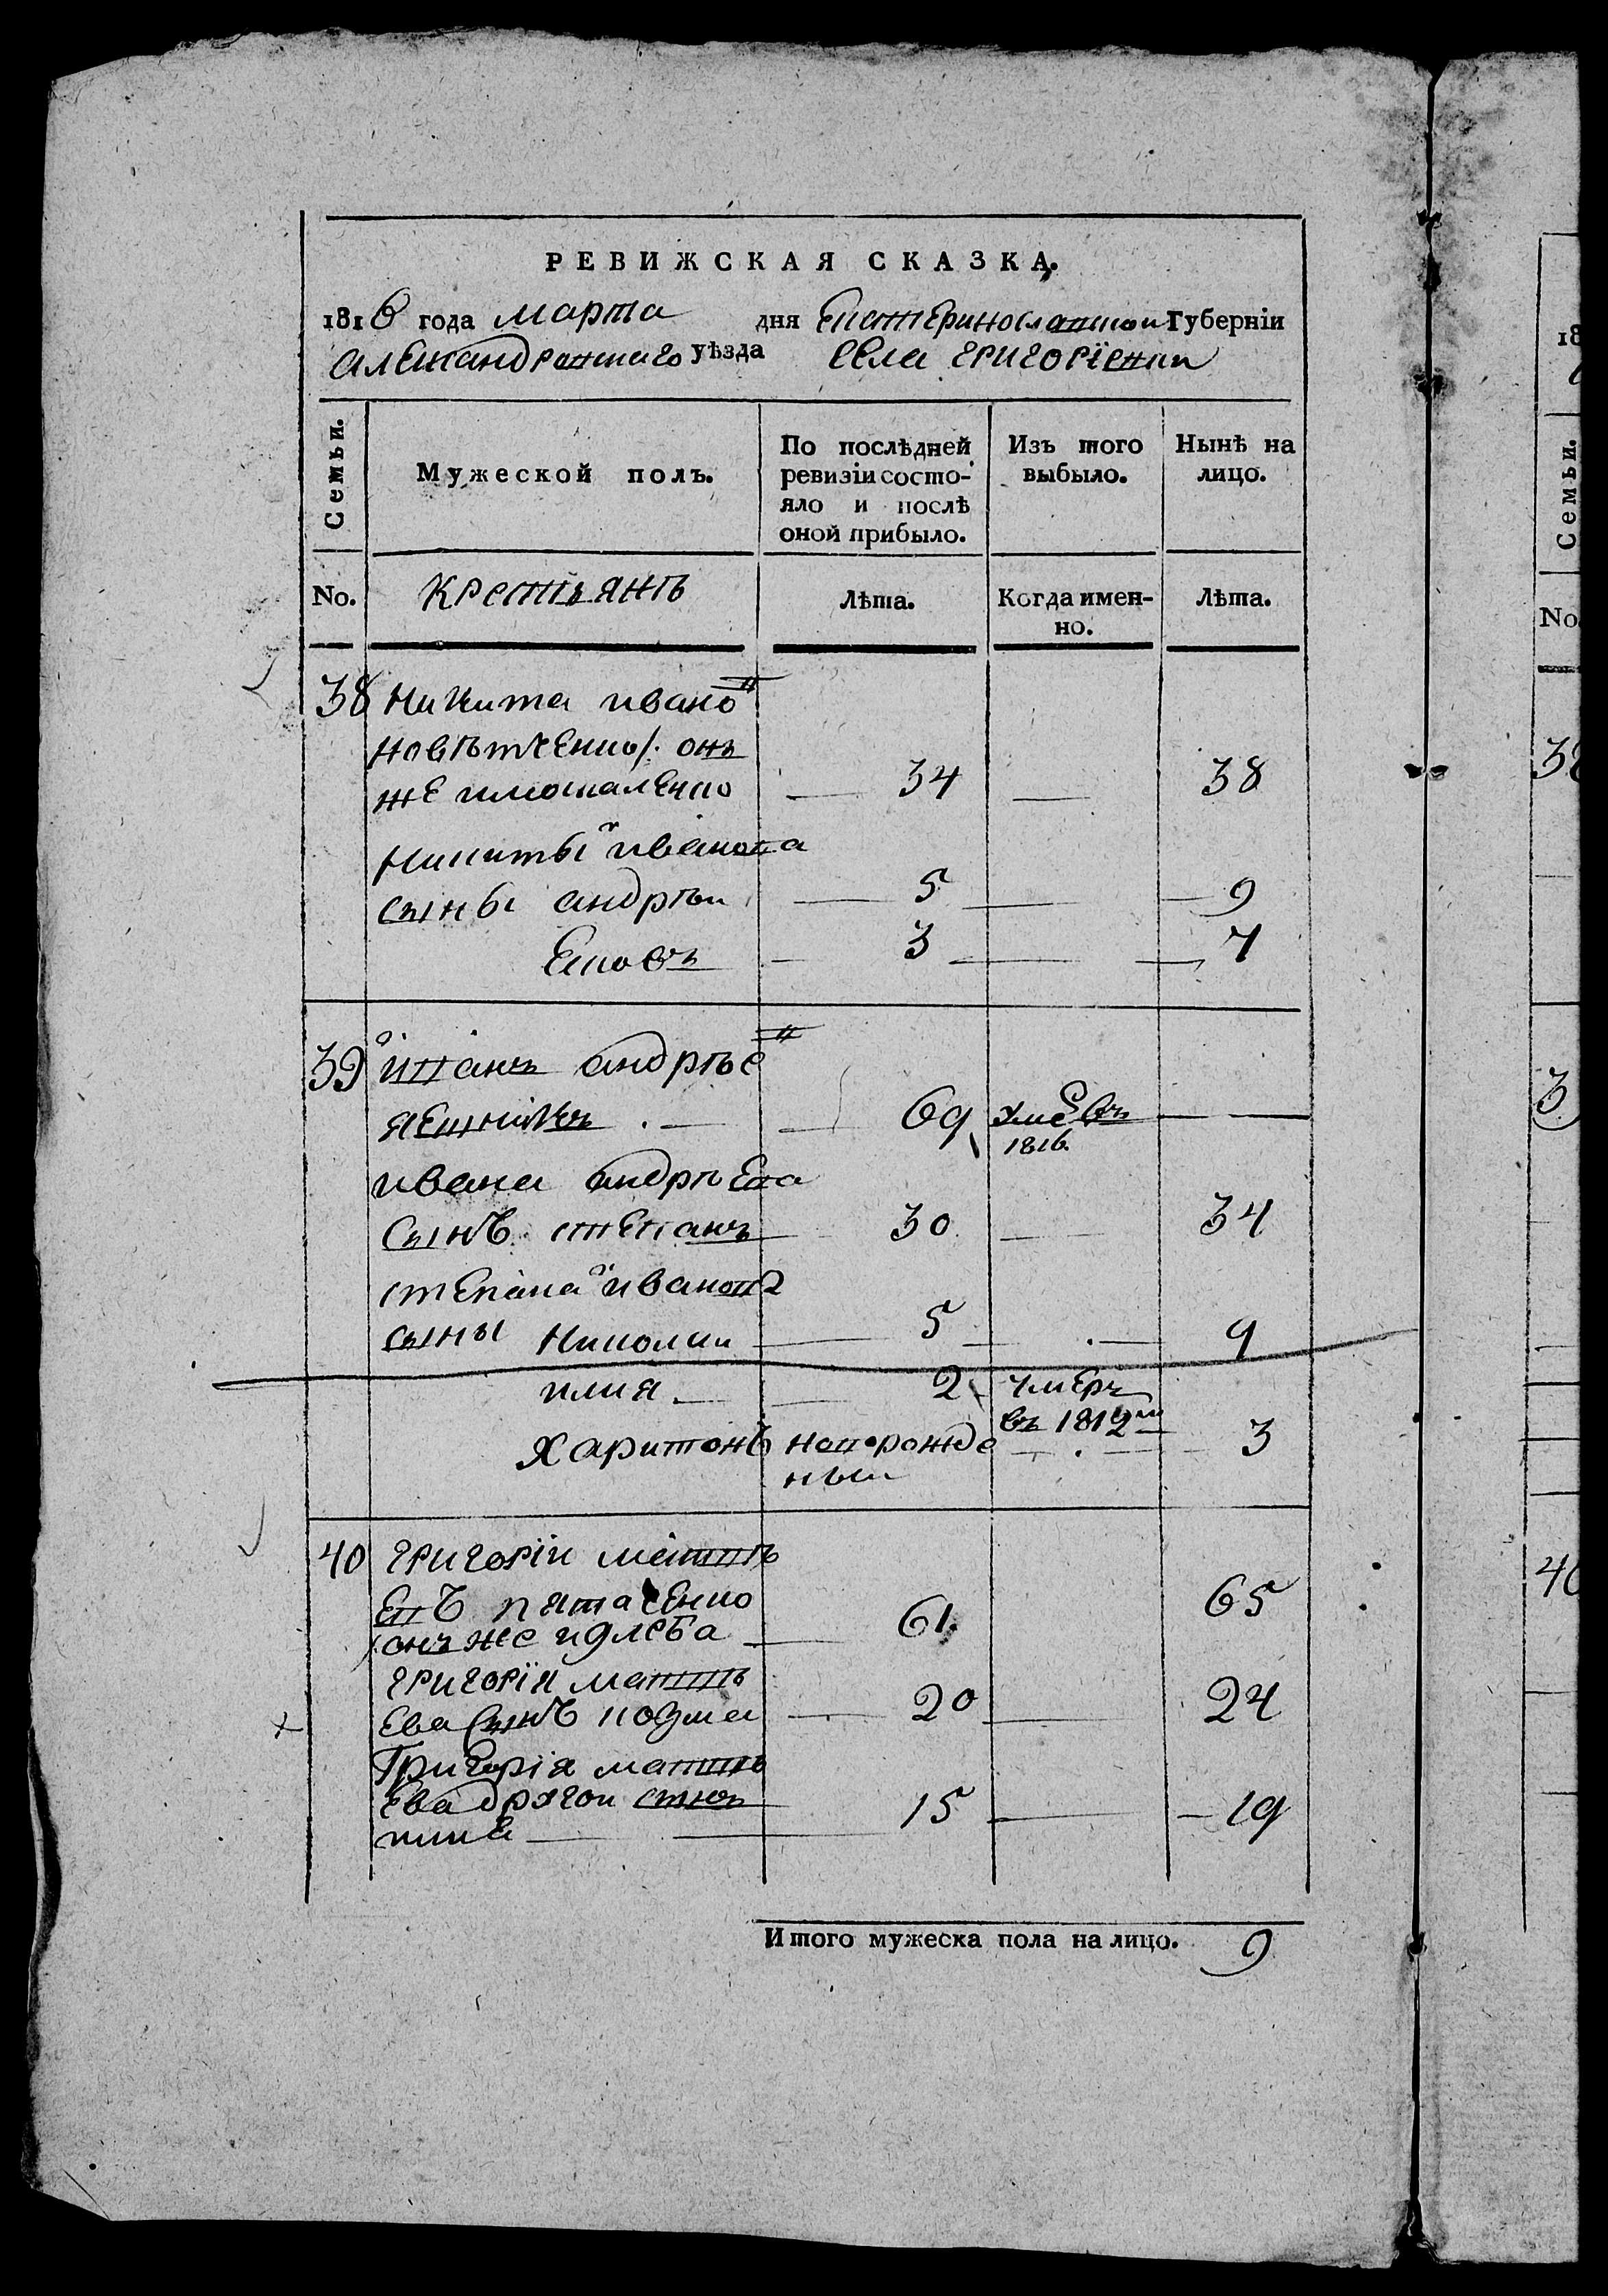 РЕВИЖСКАЯ СКАЗКА.
1816 года марта дня Екатеринославской Губерніи
Александровского уѣзда села григоріевки
Семьи.
Мужеской полъ.
По послѣдней ревизіи состо-
яло и послѣ
оной прибыло.
Изъ того
выбыло.
Нынѣ на
лицо.
No.
крестьянъ
Лѣта.
Когда имен-
но.
Лѣта.
38 Никита ивано въ
онъ
же 34 38
Никиты иванова
сыны андрѣй 5 9
Яковъ 3 7
39 иванъ андрѣе въ
69 умре въ
1816
ивана андрѣева
сынъ степанъ 30 34
степана иванова
сыны Николай 5 9
илия 2 умеръ
въ 1812м
Харитонъ новорожде 3
ный
40 григорій матвѣ
евъ пятаченко
онъ же 61 65
григорія матвѣ
ева сынъ козма 20 24
Григорія матвѣ
ева другой сынъ 15 19
Итого мужеска пола на лицо. 9
18
Семьи.
No.
38
3
40